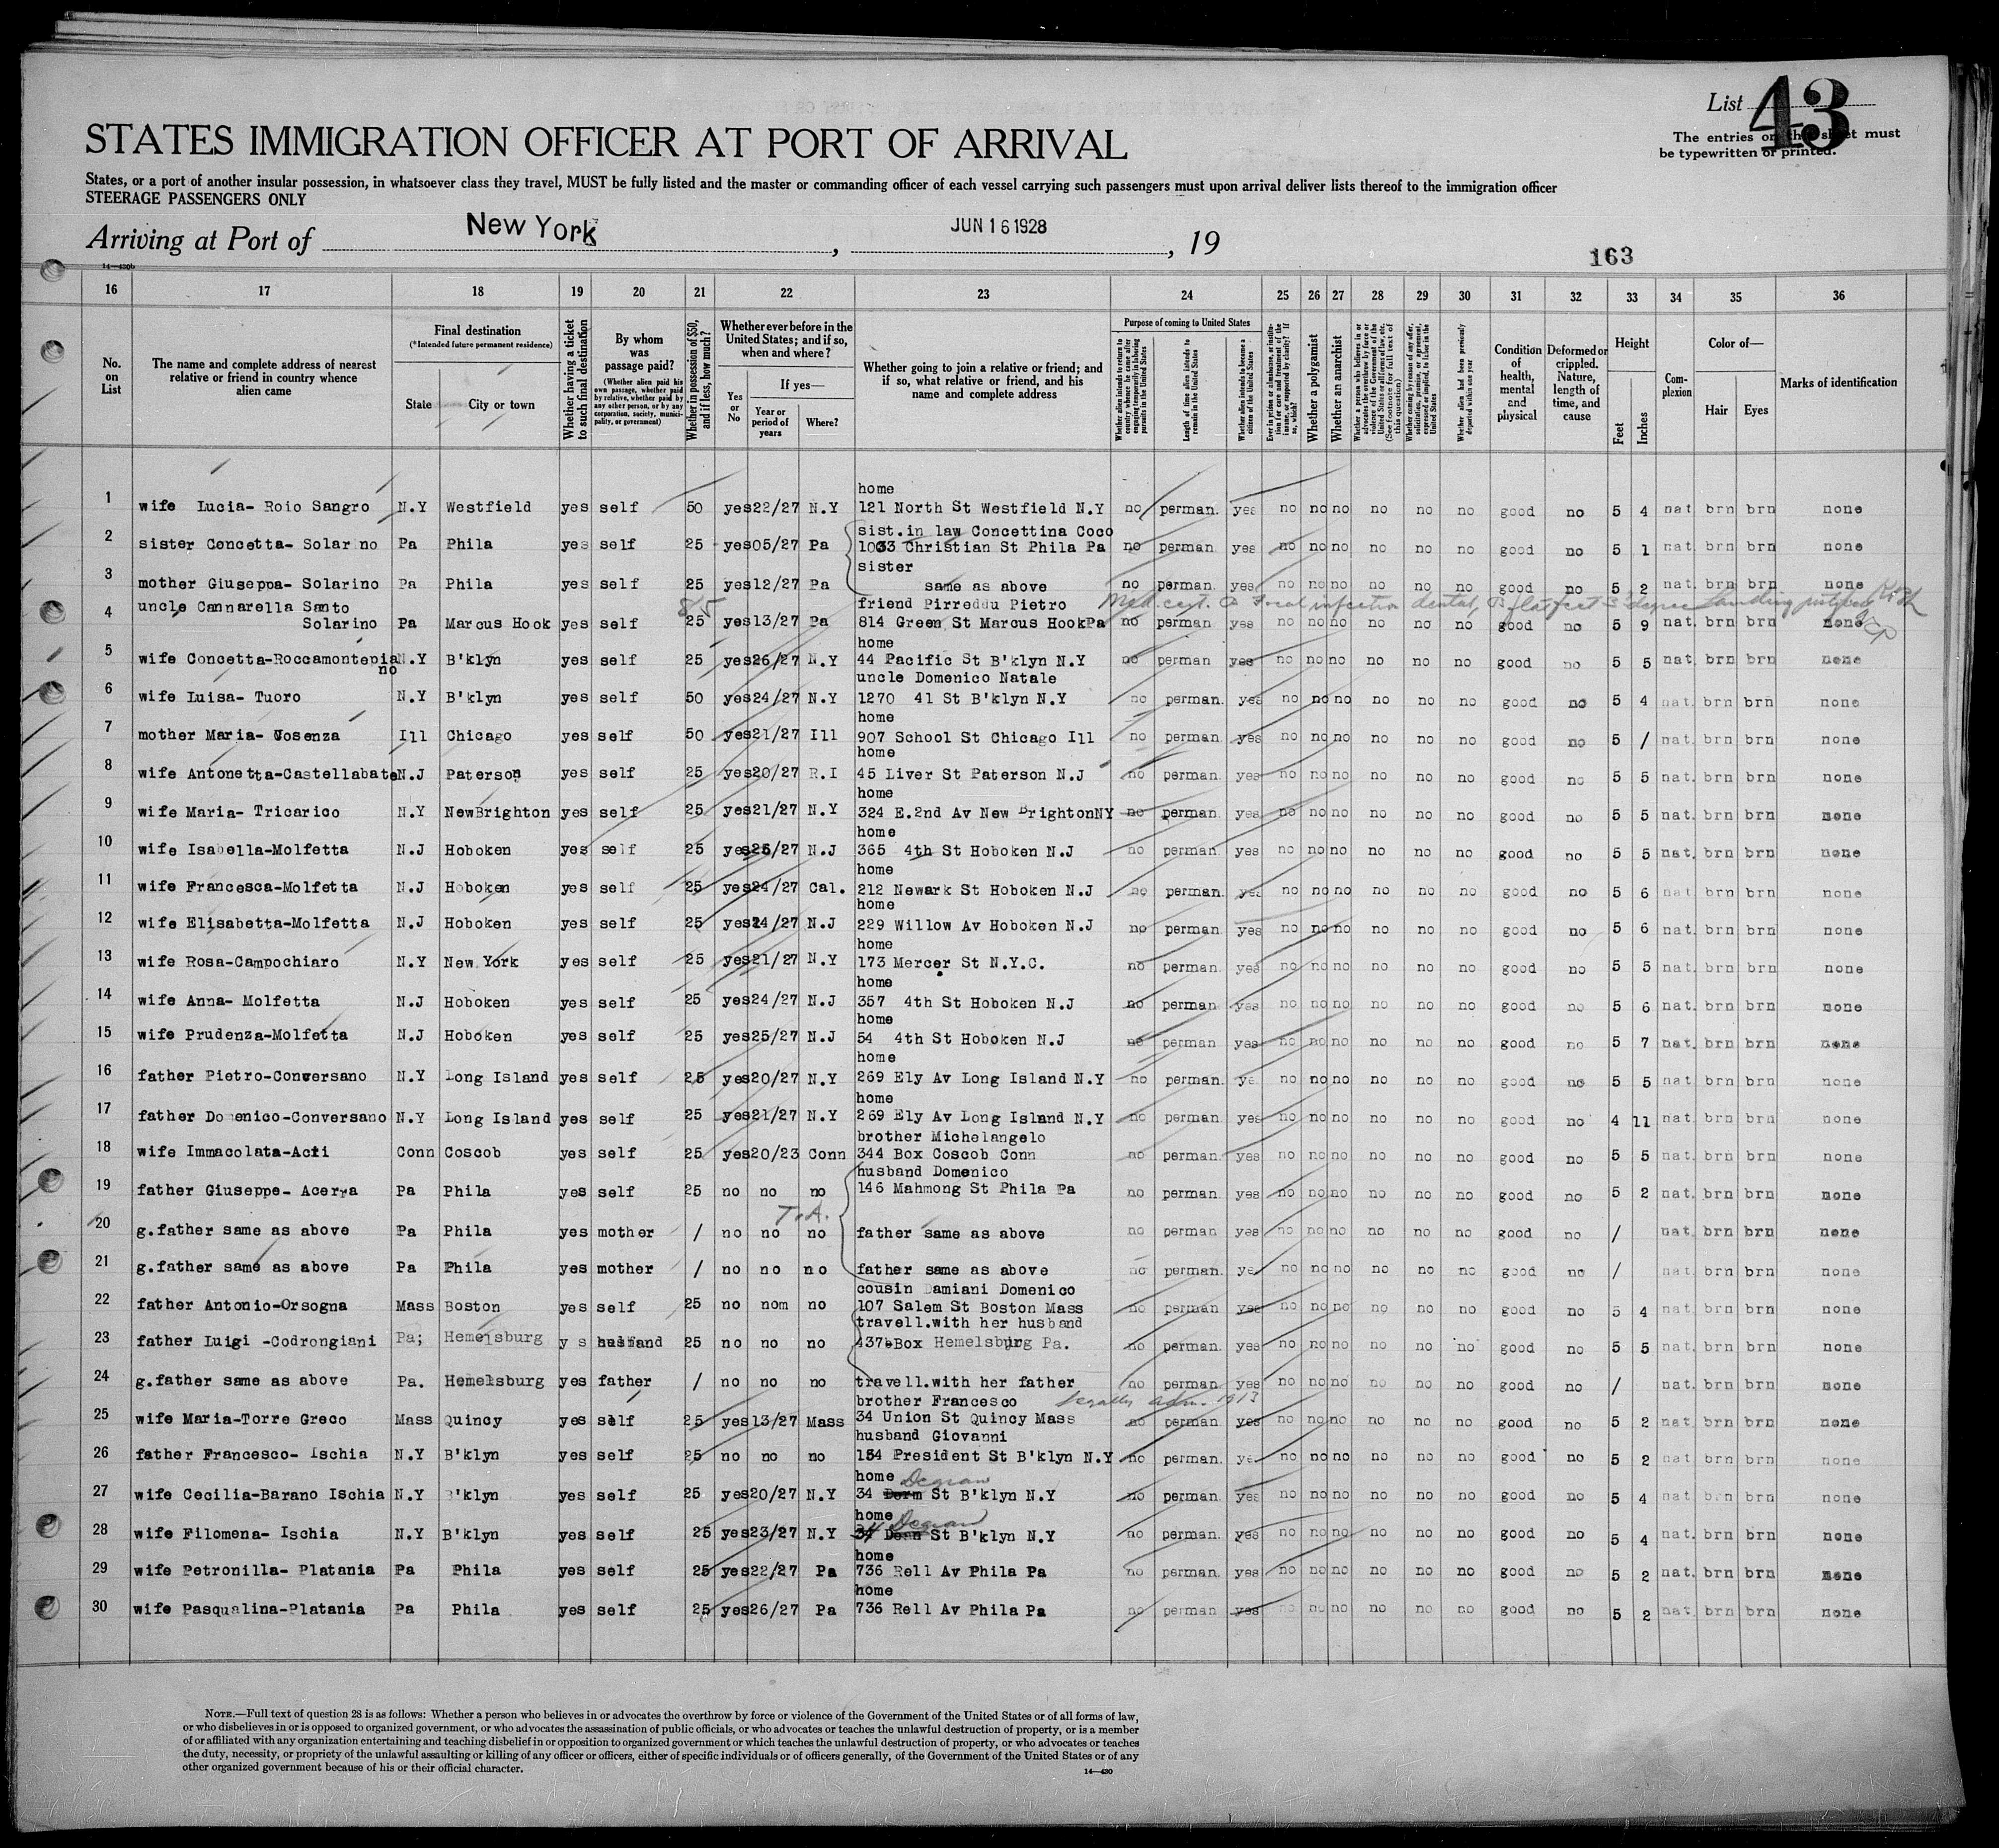 List 43
The entries on this sheet must
be typewritten or printed.
STATES IMMIGRATION OFFICER AT PORT OF ARRIVAL
States, or a port of another insular possession, in whatsoever class they travel, MUST be fully listed and the master or commanding officer of each vessel carrying such passengers must upon arrival deliver lists thereof to the immigration officer
STEERAGE PASSENGERS ONLY
Arriving at Port of New York, JUN 16 1928, 19
163
14—430b
16 17 18 19 20 21 22 23 24 25 26 27 28 29 30 31 32 33 34 35 36
No. on List
The name and complete address of nearest relative or friend in country whence alien came
Final destination
(*Intended future permanent residence)
State
City or town
Whether having a ticket to such final destination
By whom was passage paid?
(Whether alien paid his own passage, whether paid by relative, whether paid by any other person, or by any corporation, society, municipality, or government)
Whether in possession of $50, and if less, how much?
Whether ever before in the United States; and if so, when and where?
Yes or No
If yes—
Year or period of years
Where?
Whether going to join a relative or friend; and if so, what relative or friend, and his name and complete address
Purpose of coming to United States
Whether alien intends to return to country whence he came after engaging temporarily in laboring pursuits in the United States
Length of time alien intends to remain in the United States
Whether alien intends to become a citizen of the United States
Ever in prison or almshouse, or institution for care and treatment of the insane, or supported by charity? If so, which?
Whether a polygamist
Whether an anarchist
Whether a person who believes in or advocates the overthrow by force or violence of the Government of the United States or all forms of law, etc. (See footnote for full text of this question)
Whether coming by reason of any offer, solicitation, promise, or agreement, expressed or implied, to labor in the United States
Whether alien had been previously deported within one year
Condition of health, mental and physical
Deformed or crippled. Nature, length of time, and cause
Height
Feet
Inches
Complexion
Color of—
Hair
Eyes
Marks of identification
home
1 wife Lucia- Roio Sangro N.Y Westfield yes self 50 yes 22/27 N.Y 121 North St Westfield N.Y no perman. yes no no no no no no good no 5 4 nat brn brn none
sist.in law Concettina Coco
2 sister Concetta- Solar no Pa Phila yes self 25 yes 05/27 Pa 1033 Christian St Phila Pa no perman yes no no no no no no good no 5 1 nat brn brn none
sister
3 mother Giuseppa- Solarino Pa Phila yes self 25 yes 12/27 Pa same as above no perman. yes no no no no no no good no 5 2 nat brn brn none
4 uncle Cannarella Santo friend Pirreddu Pietro Med. cert. focal infection dental, flat feet 3 degree Landing
85
Solarino Pa Marcus Hook yes self 25 yes 13/27 Pa 814 Green St Marcus HookPa no perman yes no no no no no no good no 5 9 nat. brn brn none
home
5 wife Concetta-Roccamontepia N.Y B'klyn yes self 25 yes 26/27 N.Y 44 Pacific St B'klyn N.Y no perman yes no no no no no no good no 5 5 nat. brn brn none
no
uncle Domenico Natale
6 wife Luisa- Tuoro N.Y B'klyn yes self 50 yes 24/27 N.Y 1270 41 St B'klyn N.Y no perman. yes no no no no no no good no 5 4 nat. brn brn none
home
7 mother Maria- Cosenza Ill Chicago yes self 50 yes 21/27 Ill 907 School St Chicago Ill no perman. yes no no no no no no good no 5 / nat. brn brn none
home
8 wife Antonetta-Castellabate N.J Paterson yes self 25 yes 20/27 R.I 45 Liver St Paterson N.J no perman. yes no no no no no no good no 5 5 nat. brn brn none
home
9 wife Maria- Tricarico N.Y NewBrighton yes self 25 yes 21/27 N.Y 324 E.2nd Av New BrightonNY no perman. yes no no no no no no good no 5 5 nat. brn brn none
home
10 wife Isabella-Molfetta N.J Hoboken yes self 25 yes 26/27 N.J 365 4th St Hoboken N.J no perman. yes no no no no no no good no 5 5 nat. brn brn none
home
11 wife Francesca-Molfetta N.J Hoboken yes self 25 yes 24/27 Cal. 212 Newark St Hoboken N.J no perman. yes no no no no no no good no 5 6 nat brn brn none
home
12 wife Elisabetta-Molfetta N.J Hoboken yes self 25 yes 24/27 N.J 229 Willow Av Hoboken N.J no perman yes no no no no no no good no 5 6 nat. brn brn none
home
13 wife Rosa-Campochiaro N.Y New York yes self 25 yes 21/27 N.Y 173 Mercer St N.Y.C. no perman. yes no no no no no no good no 5 5 nat. brn brn none
home
14 wife Anna- Molfetta N.J Hoboken yes self 25 yes 24/27 N.J 357 4th St Hoboken N.J no perman. yes no no no no no no good no 5 6 nat. brn brn none
home
15 wife Prudenza-Molfetta N.J Hoboken yes self 25 yes 25/27 N.J 54 4th St Hoboken N.J no perman yes no no no no no no good no 5 7 nat. brn brn none
home
16 father Pietro-Conversano N.Y Long Island yes self 25 yes 20/27 N.Y 269 Ely Av Long Island N.Y no perman. ye. no no no no no no good no 5 5 nat brn brn none
home
17 father Do enico-Conversano N.Y Long Island yes self 25 yes 21/27 N.Y 269 Ely Av Long Island N.Y no perman. yes no no no no no no good no 4 11 nat. brn brn none
brother Michelangelo
18 wife Immacolata-Acri Conn Coscob yes self 25 yes 20/23 Conn 344 Box Coscob Conn no perman. yes no no no no no no good no 5 5 nat. brn brn none
husband Domenico
19 father Giuseppe- Acerra Pa Phila yes self 25 no no no 146 Mahmong St Phila Pa no perman. yes no no no no no no good no 5 2 nat. brn brn none
T.A.
20 g.father same as above Pa Phila yes mother / no no no father same as above no perman. yes no no no no no no good no / nat. brn brn none
21 g.father same as above Pa Phila yes mother / no no no father same as above no perman. ye/ no no no no no no good no / nat. brn brn none
cousin Damiani Domenico
22 father Antonio-Orsogna Mass Boston yes self 25 no nom no 107 Salem St Boston Mass no perman yes no no no no no no good no 5 4 nat. brn brn none
travell.with her husband
23 father Luigi -Codrongiani Pa; Hemelsburg y s husband 25 no no no 437 Box Hemelsburg Pa. no perman. yes no no no no no no good no 5 5 nat. brn brn none
24 g.father same as above Pa. Hemelsburg yes father / no no no travell.with her father no perman. yes no no no no no no good no / nat. brn brn none
brother Francesco legally adm. 1913
25 wife Maria-Torre Greco Mass Quincy yes self 25 yes 13/27 Mass 34 Union St Quincy Mass no perman. yes no no no no no no good no 5 2 nat. brn brn none
husband Giovanni
26 father Francesco- Ischia N.Y B'klyn yes self 25 no no no 154 President St B'klyn N.Y no perman. ye. no no no no no no good no 5 2 nat brn brn none
home Degraw
27 wife Cecilia-Barano Ischia N.Y B'klyn yes self 25 yes 20/27 N.Y 34 St B'klyn N.Y no perman. yes no no no no no no good no 5 4 nat brn brn none
home Degraw
28 wife Filomena- Ischia N.Y B'klyn yes self 25 yes 23/27 N.Y 34 St B'klyn N.Y no perman. yes no no no no no no good no 5 4 nat. brn brn none
home
29 wife Petronilla- Platania Pa Phila yes self 25 yes 22/27 Pa 736 Rell Av Phila Pa no perman. yes no no no no no no good no 5 2 nat. brn brn none
home
30 wife Pasqualina-Platania Pa Phila yes self 25 yes 26/27 Pa 736 Rell Av Phila Pa no perman yes no no no no no no good no 5 2 nat. brn brn none
NOTE.—Full text of question 28 is as follows: Whether a person who believes in or advocates the overthrow by force or violence of the Government of the United States or of all forms of law,
or who disbelieves in or is opposed to organized government, or who advocates the assassination of public officials, or who advocates or teaches the unlawful destruction of property, or is a member
of or affiliated with any organization entertaining and teaching disbelief in or opposition to organized government or which teaches the unlawful destruction of property, or who advocates or teaches
the duty, necessity, or propriety of the unlawful assaulting or killing of any officer or officers, either of specific individuals or of officers generally, of the Government of the United States or of any
other organized government because of his or their official character.
14—430